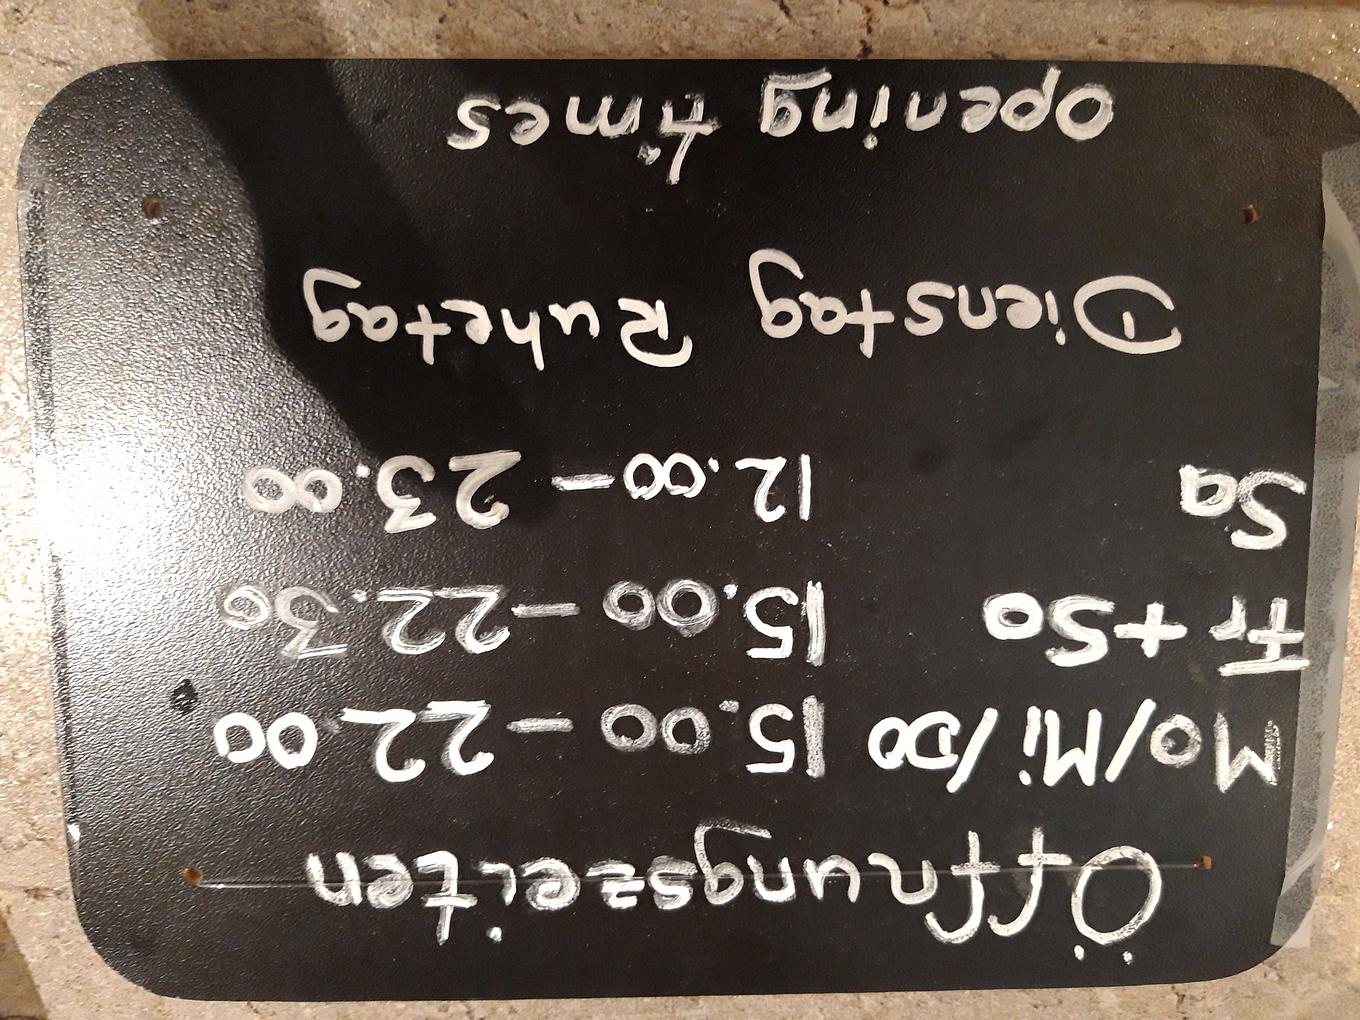 Öffnungszeiten
Mo/Mi/DO 15.00-22.00
Fr + So 15.00-22.30
Sa 12.00-23.00
Dienstag Ruhetag
opening times